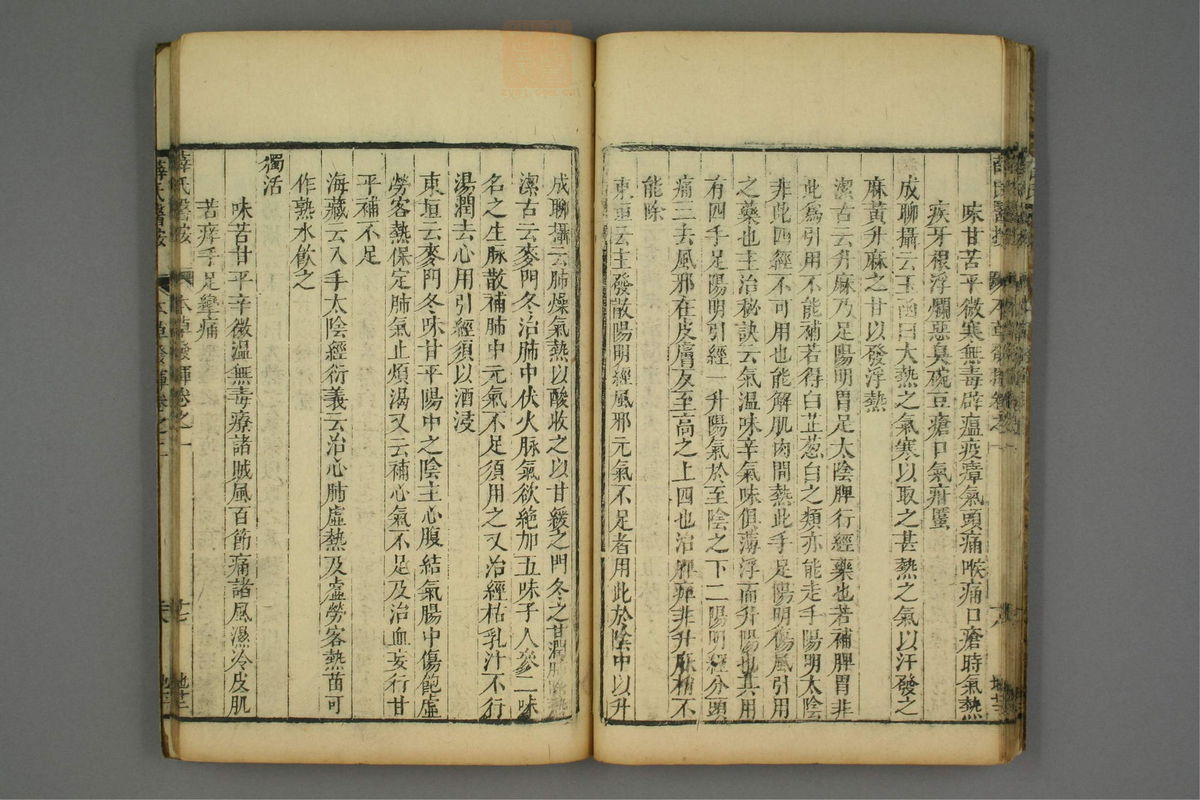 味甘苦平微寒無毒辟瘟疫瘴氣頭痛喉痛口瘡時氣熱
疾牙根浮爛惡臭豌豆瘡口氣疳䘌
成聊攝云玉函曰大熱之氣寒以取之甚熱之氣以汗發之
麻黃升麻之甘以發浮熱
潔古云升麻乃足陽明胃足太陰脾行經藥也若補脾胃非
此爲引用不能補若得白芷葱白之類亦能走手陽明太陰
非此四經不可用也能解肌肉間熱此手足陽明傷風引用
之藥也主治秘訣云氣温味辛氣味俱薄浮而升陽也其用
有四手足陽明引經一升陽氣於至陰之下二陽明經分頭
痛三去風邪在皮膚及至高之上四也治脾痺非升麻梢不
能除
東垣云主發散陽明經風邪元氣不足者用此於陰中以升
成聊攝云肺燥氣熱以酸收之以甘緩之門冬之甘潤肺
潔古云麥門冬治肺中伏火脉氣欲絶加五味子人參二味
名之生脉散補肺中元氣不足須用之又治經枯乳汁不行
湯潤去心用引經須以酒浸
東垣云麥門冬味甘平陽中之陰主心腹結氣腸中傷飽虛
勞客熱保定肺氣止煩渴又云補心氣不足及治血妄行甘
平補不足
海藏云入手太陰經衍義云治心肺虛熱及虛勞客熱苗可
作熟水飲之
獨活
味苦甘平辛微温無毒療諸賊風百節痛諸風濕冷皮肌
苦痺手足攣痛
薛氏醫按 本草發揮卷之一